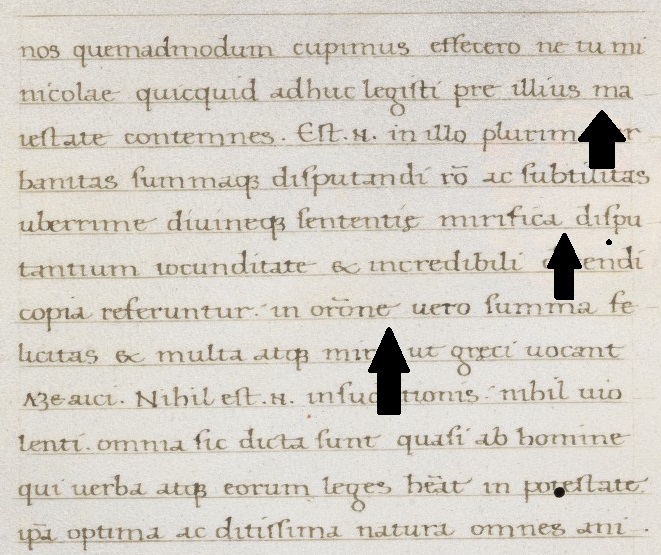 nos quemadmodum cupimus effecero ne tu mi
nicolae quicquid adhuc legisti pre illius ma
iestate contemnes. Est .n. in illo
banitas summaqꝫ disputandi rō ac subtilitas
uberrime diuineqꝫ sententię mirifica dispu
tantium iocunditate & incredibili
copia referuntur. in orōne uero summa fe
licitas & multa atqꝫ ut gręci uocant
Nihil est .n. nihil uio
lenti. omnia sic dicta sunt quasi ab homine
qui uerba atqꝫ eorum leges hēat in potestate.
ipa optima ac ditissima natura omnes ani